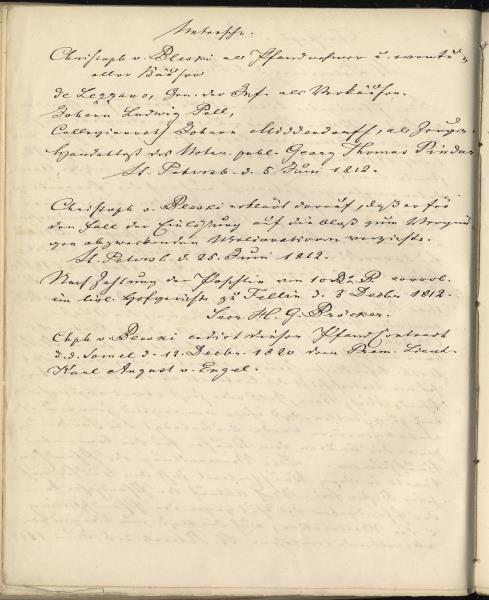 Unterschr.
Christoph v. Bleski als Pfandnehmer u. eventu-
eller Käufer
de Lezzano, Gen. der Inf. als Verkäufer.
Johann Ludwig Poll,
Collegienrath Johann Middendorff, als Zeugen
Handattest des Notar. publ. Georg Thomas Pindar
St. Petersb. d. 5 Juni 1812.
Christoph v. Bleski erklärt darauf, daß er für
den Fall der Einlösung auf die bloß zum Vergnü-
gen abzweckenden Meliorationen verzichte.
St. Petersb. d. 25. Juni 1812.
Nach Zahlung der Poschlin von
ein livl. Hofgericht zu Fellin d. 3 Decbr 1812.
Secr. H. G. Brücker.
Chph v. Bleski cedirt diesen Pfandcontract
d. d. d. 12. Decbr. 1820 dem Prem. Lieut.
Karl August v. Engel.